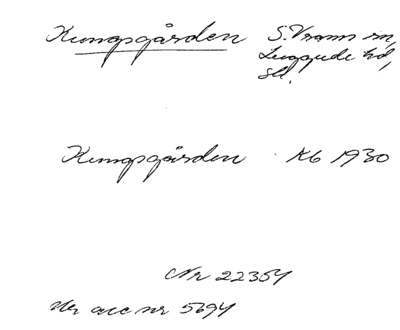 Kungsgården S. Vrams sn,
Luggude hd,
Sk.
Kungsgården Kb 1930
Nr 22354
Ny acc nr 5694